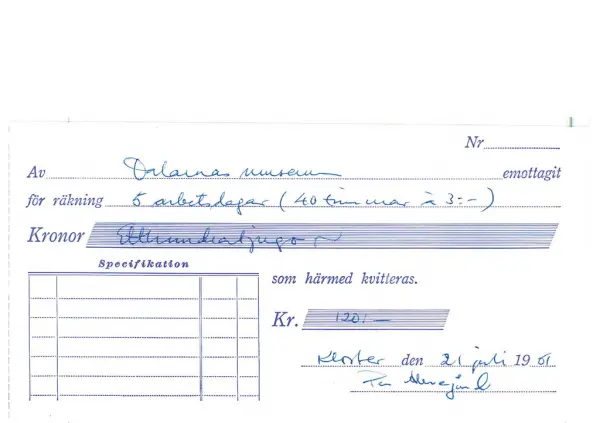 Nr
Av Dalarnas museum emottagit
för räkning 5 arbetsdagar (40 timmar à 3:-)
Kronor Etthundratjugo
Specifikation
som härmed kvitteras.
Kr. 120:-
Kloster den 21 juli 1961
Per